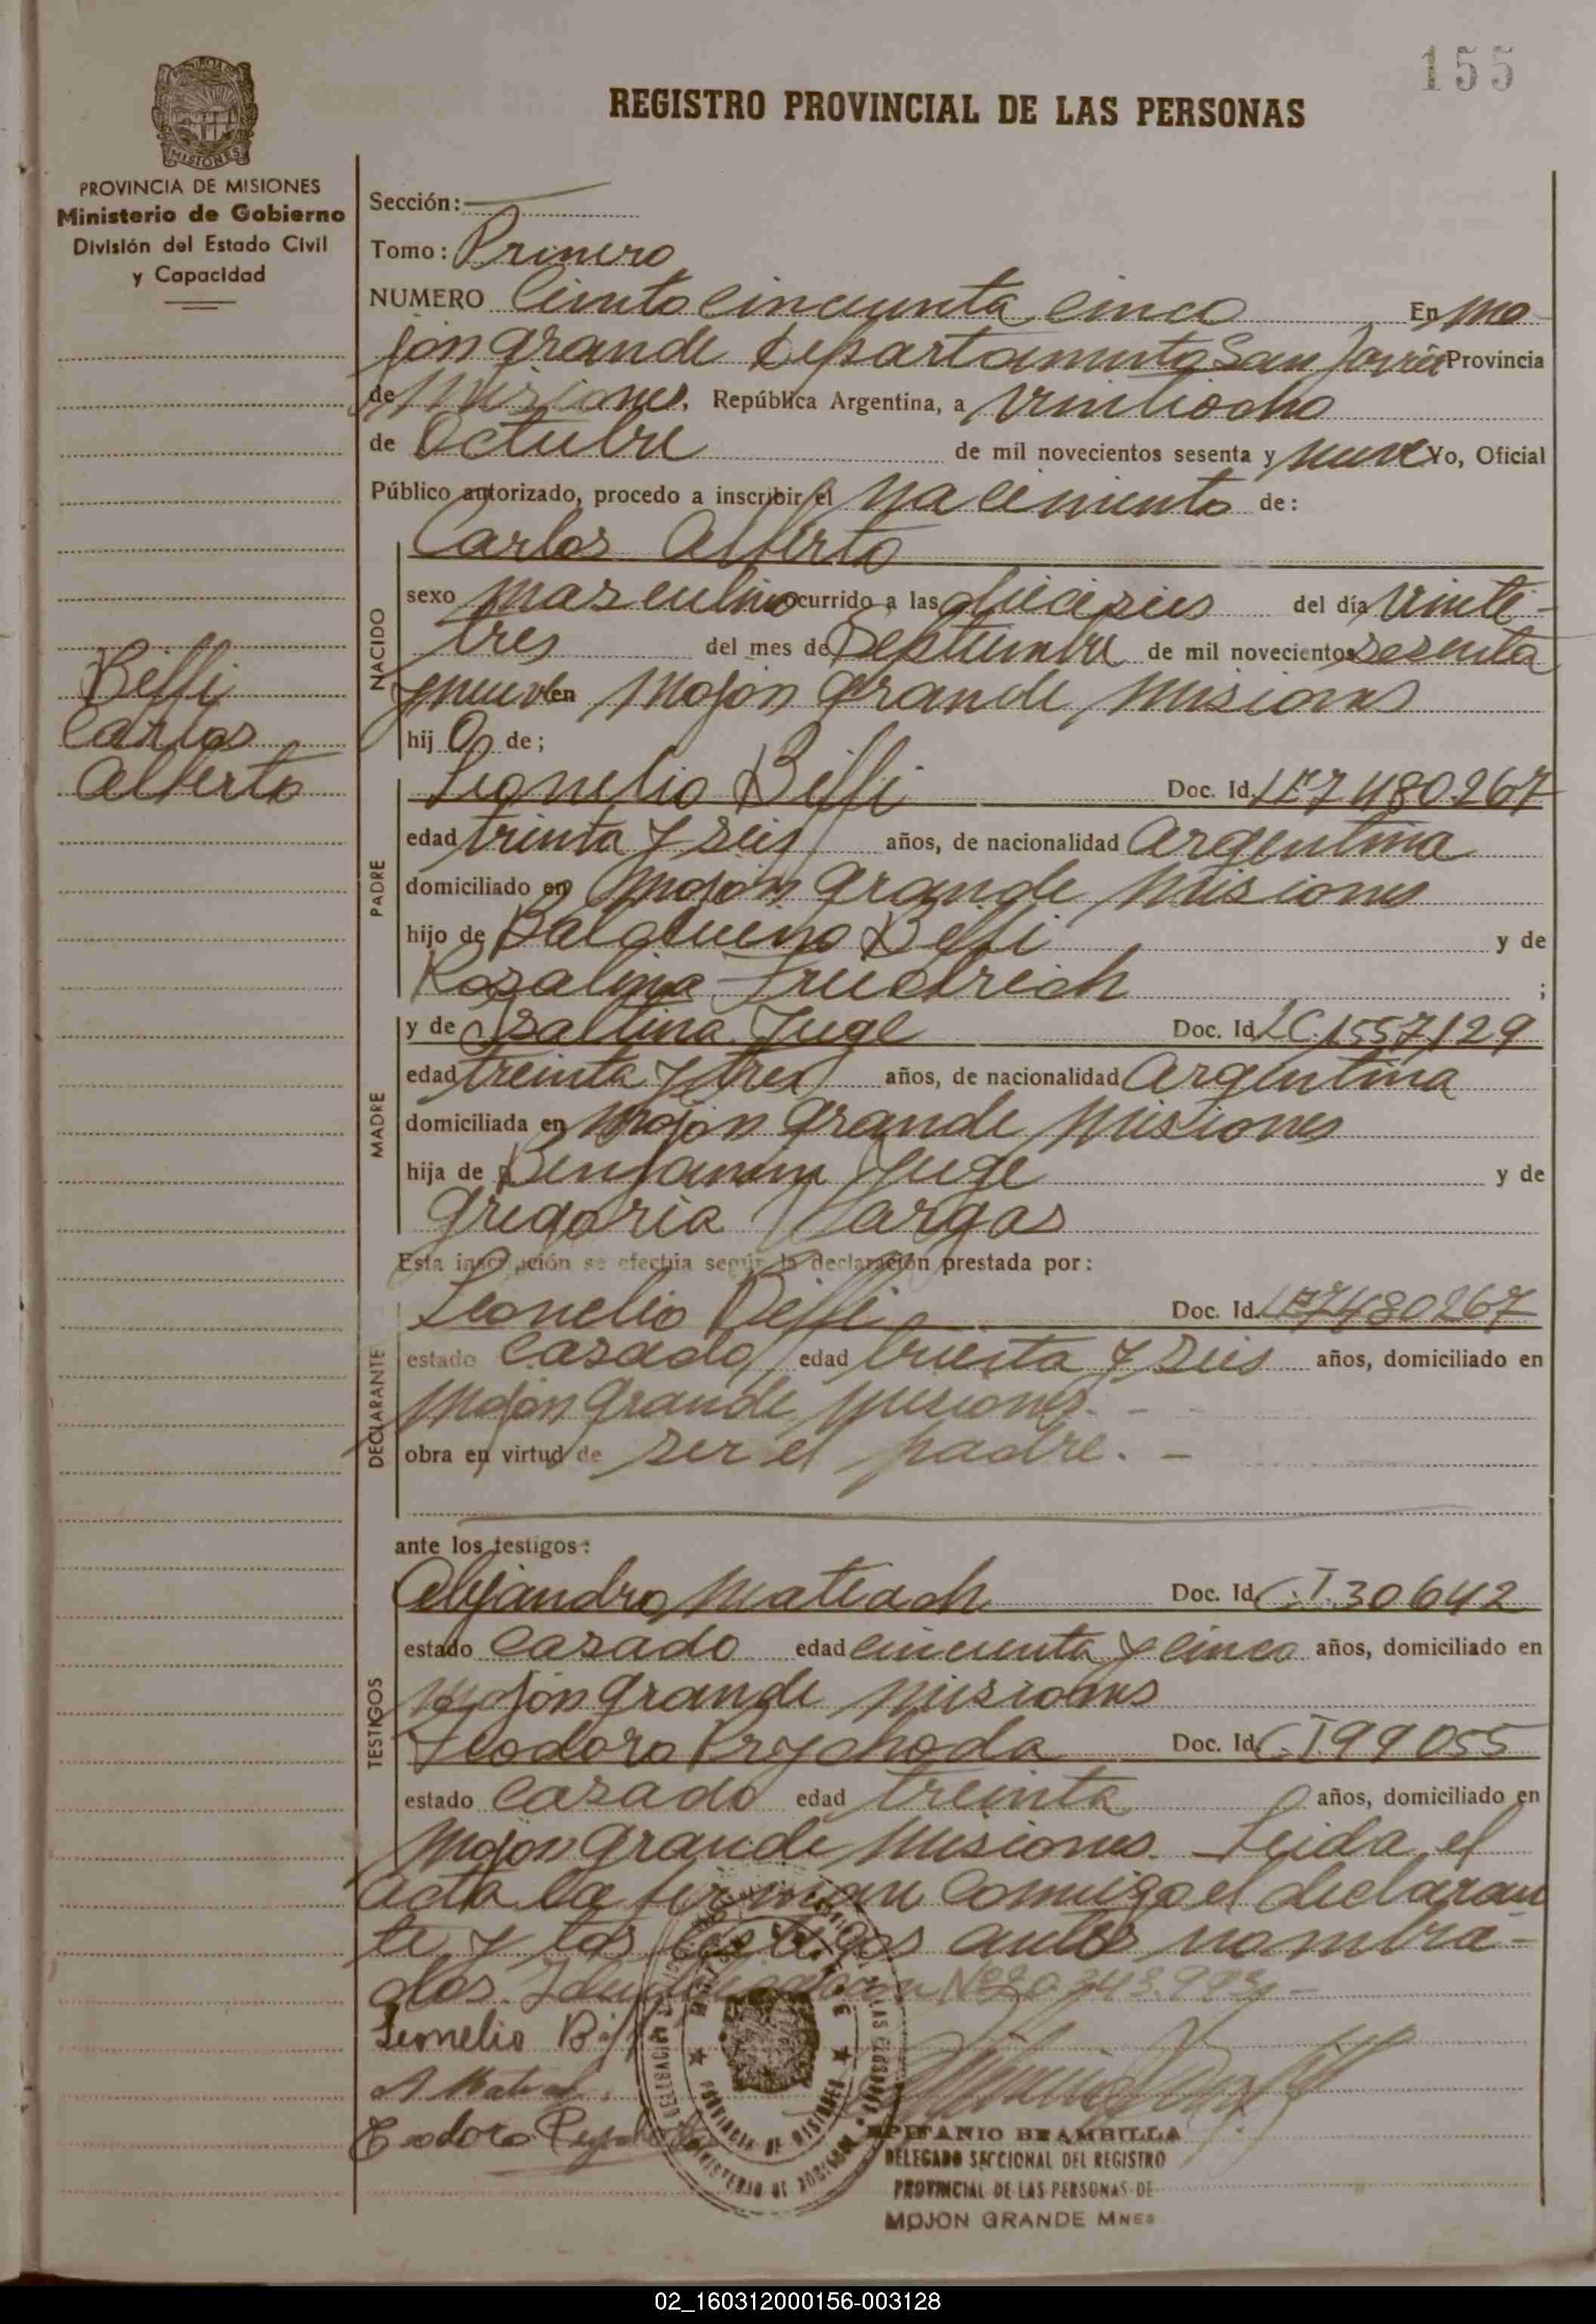 155
REGISTRO PROVINCIAL DE LAS PERSONAS
MISIONES
PROVINCIA DE MISIONES
Ministerio de Gobierno
División del Estado Civil
y Capacidad
Sección:
Tomo: Primero
NUMERO Ciento cincuenta cinco En Mo
jón Grande Departamento San Javier Provincia
de Misiones, República Argentina, a veintiocho
de Octubre de mil novecientos sesenta y nueve Yo, Oficial
Público autorizado, procedo a inscribir el nacimiento de:
Carlos Alberto
NACIDO
sexo masculino ocurrido a las dieciseis del día veinti-
tres del mes de Septiembre de mil novecientos sesenta
y nueve en Mojón Grande, Misiones
hij o de;
Beffi
Carlos
Alberto
PADRE
Leonelio Beffi Doc. Id. LE 7480267
edad trinta y seis años, de nacionalidad Argentina
domiciliado en Mojón Grande Misiones
hijo de Beffi y de
Rosalina Friedrich ;
MADRE
y de Juge Doc. Id. LC.1557129
edad treinta y tres años, de nacionalidad Argentina
domiciliada en Mojón Grande Misiones
hija de Benjamin Juge y de
Gregoria Vargas
Esta inscripción se efectúa según la declaración prestada por:
DECLARANTE
Leonelio Beffi Doc. Id. LE7480267
estado casado edad trienta y seis años, domiciliado en
Mojón Grande Misiones.
obra en virtud de ser el padre. -
ante los testigos:
TESTIGOS
Alejandro Matiach Doc. Id. C.I.30642
estado casado edad cincuenta y cinco años, domiciliado en
Mojón Grande Misiones
Teodoro Prychoda Doc. Id. C.I.99055
estado casado edad treinta años, domiciliado en
Mojón Grande Misiones. Leida el
acta la firman conmigo el declaran
te y los testigos antes nombra-
dos. Nº
Leonelio Beffi
Teodoro
PROVINCIA DE MISIONES
EPIFANIO BRAMBILLA
DELEGADO SECCIONAL DEL REGISTRO
PROVINCIAL DE LAS PERSONAS DE
MOJON GRANDE MNES
02_160312000156-003128